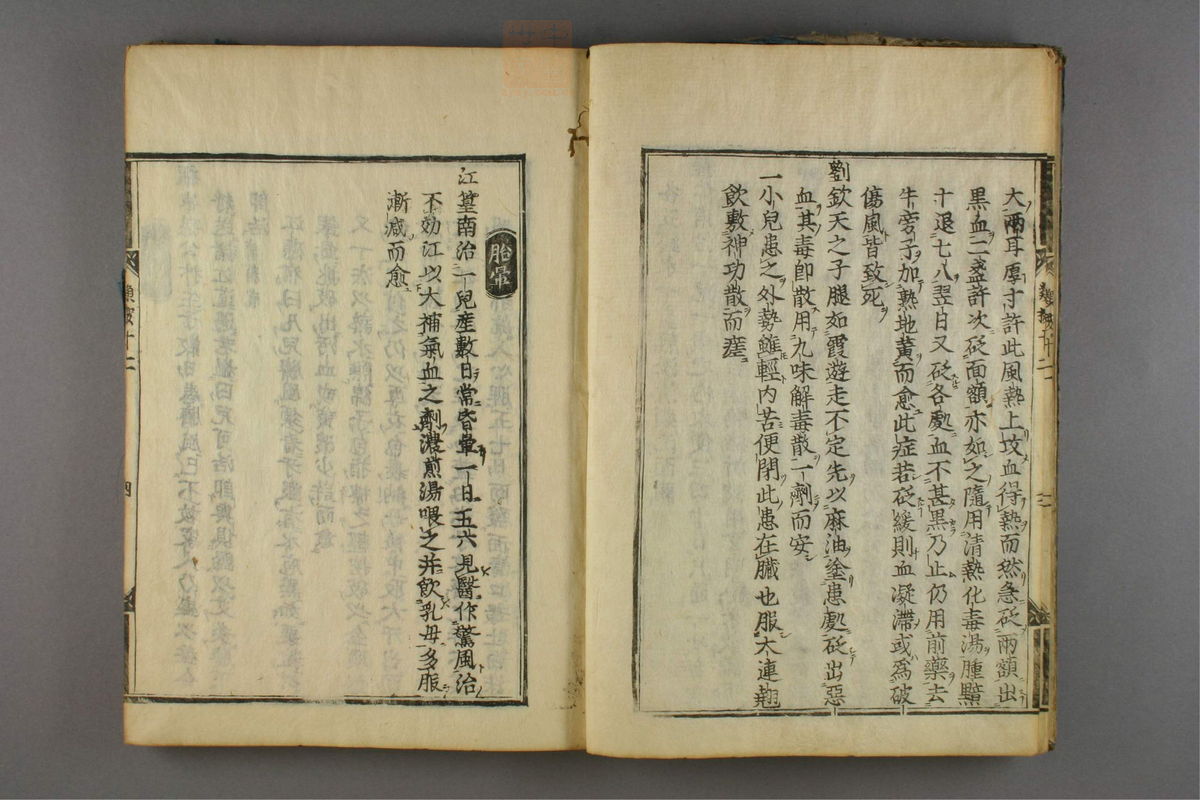 大兩耳厚寸許此風熱上攻血得熱而然急砭兩額出
黑血二盞許次砭面額亦如之隨用清熱化毒湯腫黯
十退七八翌日又砭各處血不甚黑乃止仍用前藥去
牛旁子加熟地黃而愈此症若砭緩則血凝滯或為破
傷風皆致死
劉欽天之子腿如霞遊走不定先以麻油塗患處砭出惡
血其毒卽散用九味解毒散一劑而安
一小兒患之外勢雖輕內苦便閉此患在臟也服大連翹
飲敷神功散而瘥
胎暈
江篁南治一兒産數日常昏暈一日五六見醫作驚風治
不効江以大補氣血之劑濃煎湯喂之幷飲乳母多服
漸減而愈
十二
四